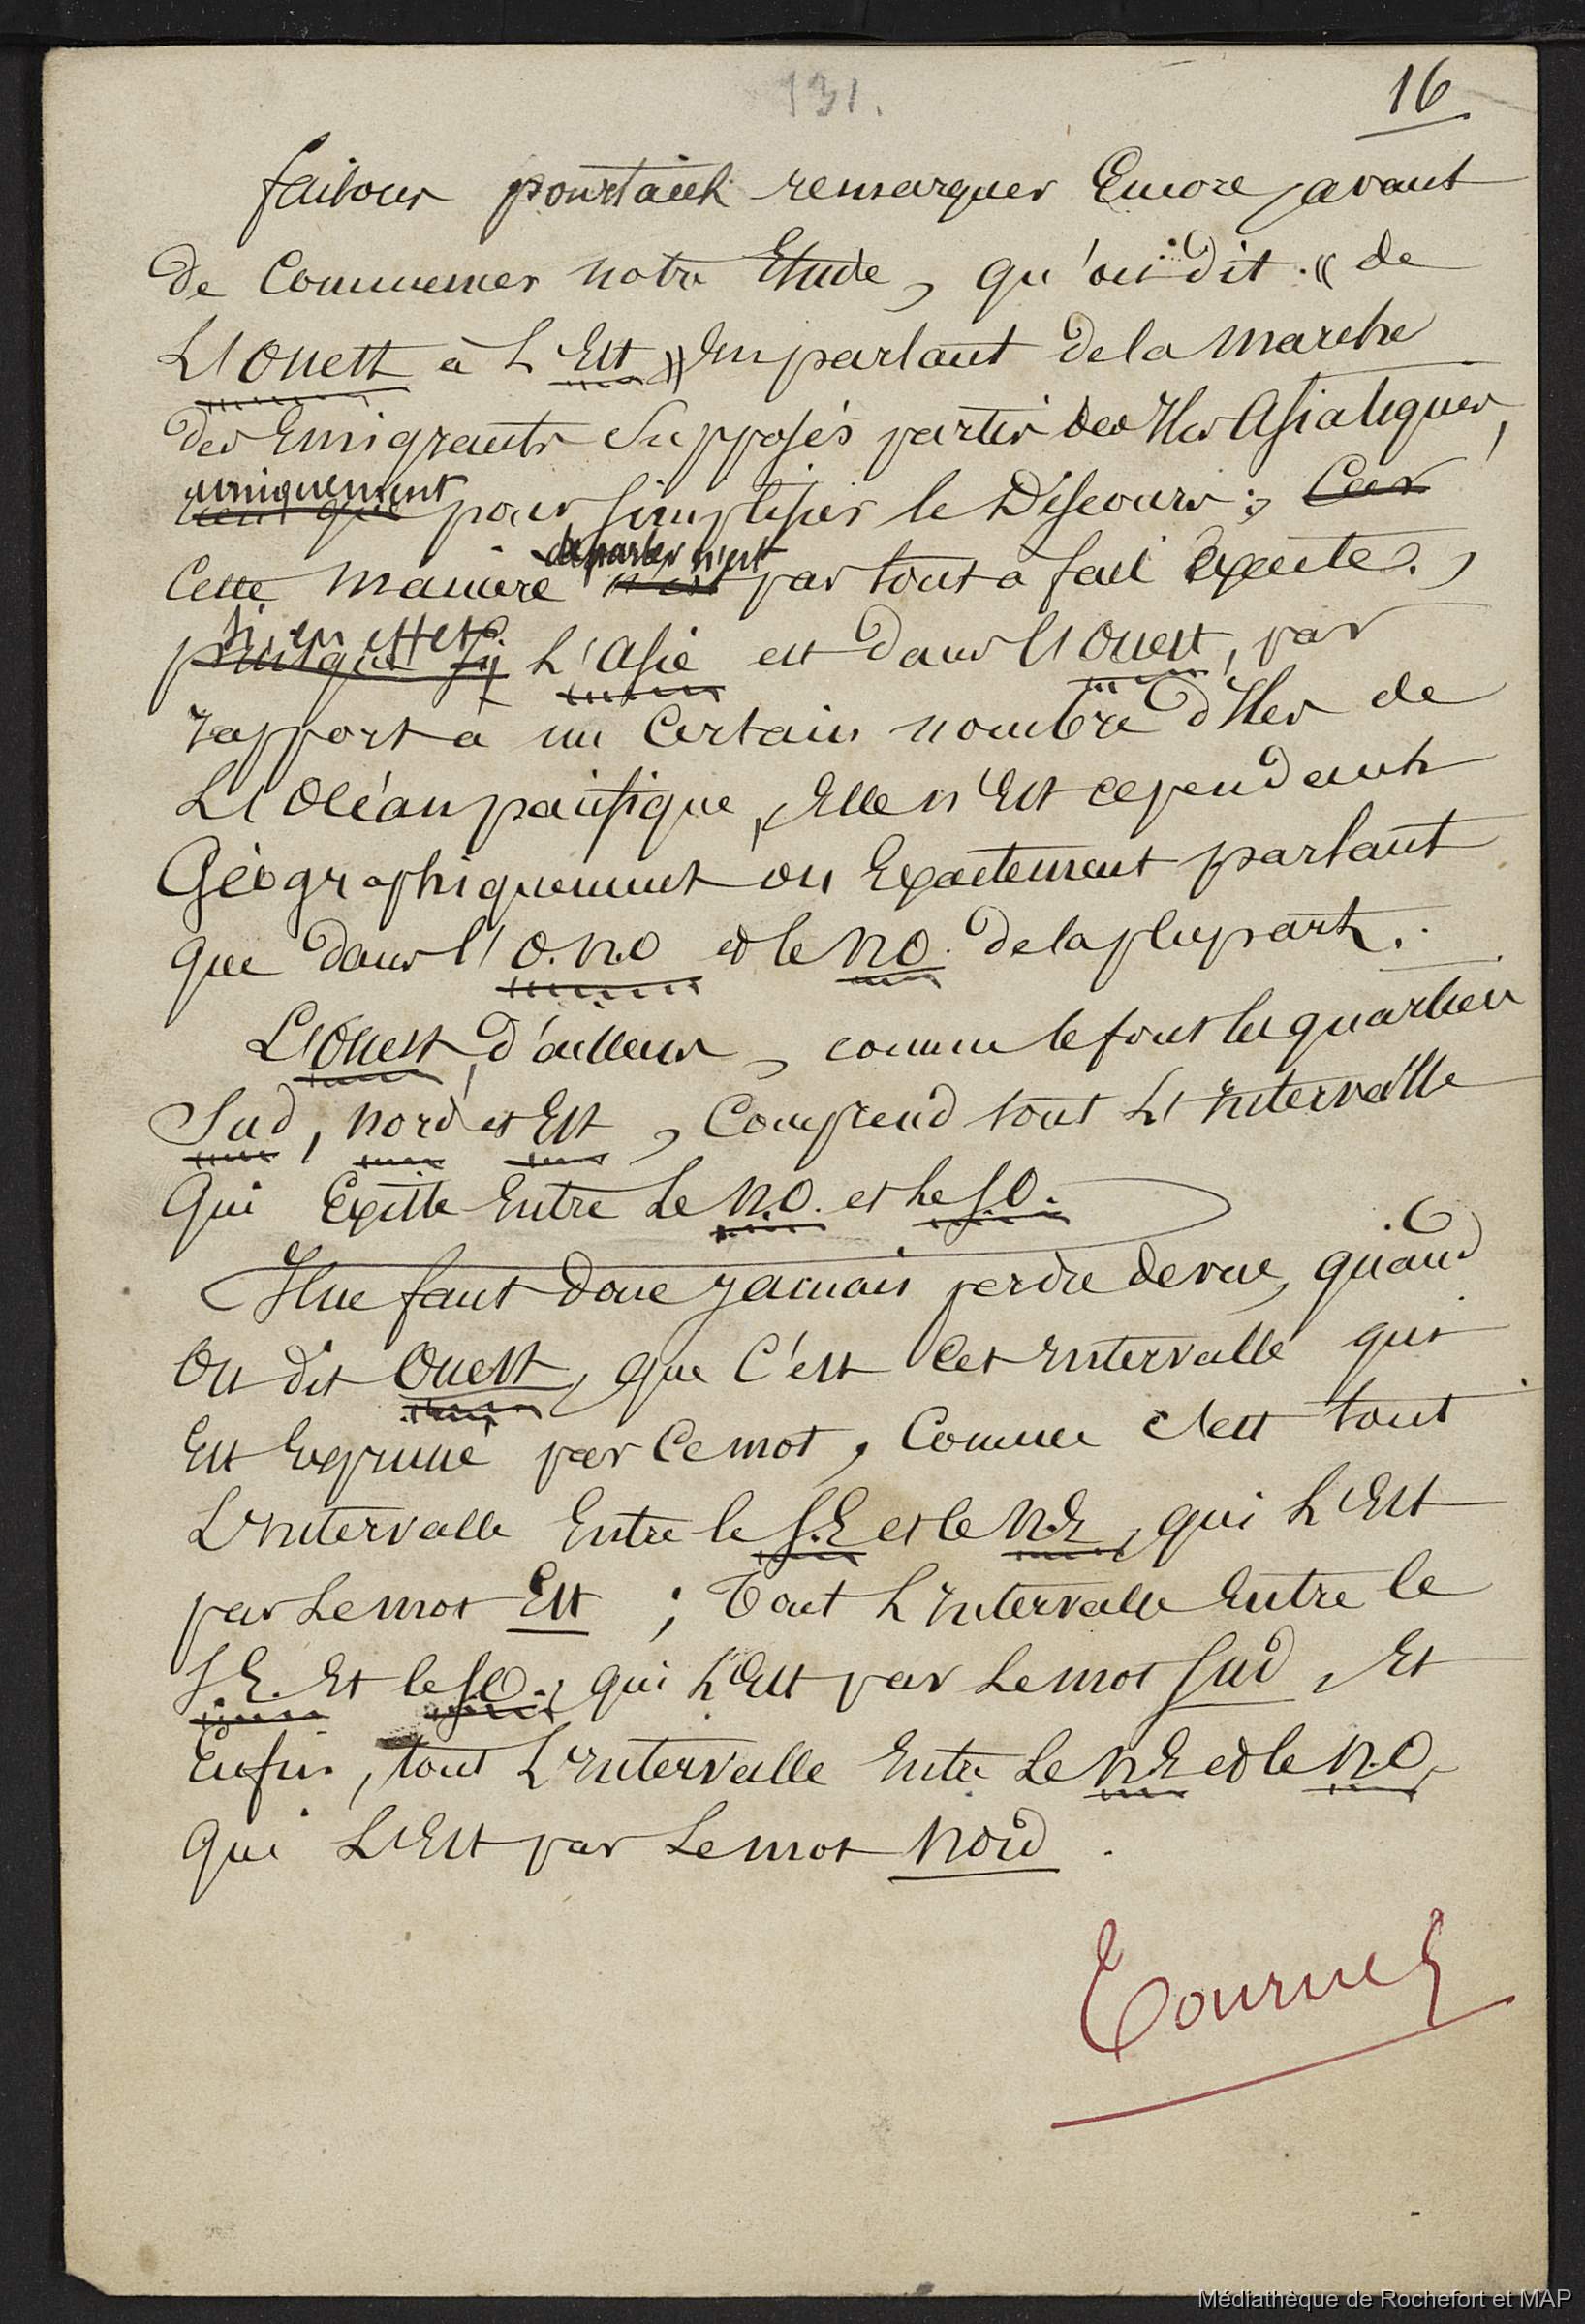 131.
16
faisons pourtant remarquer Encore, avant
de Commencer notre Etude, qu'on dit « de
L'Ouest à L'Est » En parlant de la marche
des Emigrants Supposés partir des Iles Asiatiques,
uniquement pour simplifier le Discours ; Car
Cette maniere de parler n'est pas tout à fait Exacte ,
puisque si, en effet, L'Asie est dans l'Ouest, par
rapport à un Certain nombre d'Iles de
L'Océan pacifique, Elle n'Est cependant
Géographiquement ou Exactement parlant
que dans l'O.N.O et le NO. de la plupart.
L'Ouest, d'ailleurs, comme le font les quartiers
Sud, nord et Est, Comprend tout L'Intervalle
Qui Existe Entre Le N.O. et Le S.O.
Il ne faut donc jamais perdre de vue, quand
On dit Ouest, que C'est Cet Intervalle qui
Est Exprimé par Ce mot, Comme c'est tout
L'Intervalle Entre le S.E et le N.E, qui L'Est
par Le mot Est ; Tout L'Intervalle Entre le
S.E. Et le SO., qui L'Est par Le mot Sud, Et
Enfin, tout L'Intervalle Entre Le N.E et le N.O,
Qui L'Est par Le mot Nord.
Tournez
Médiathèque de Rochefort et MAP